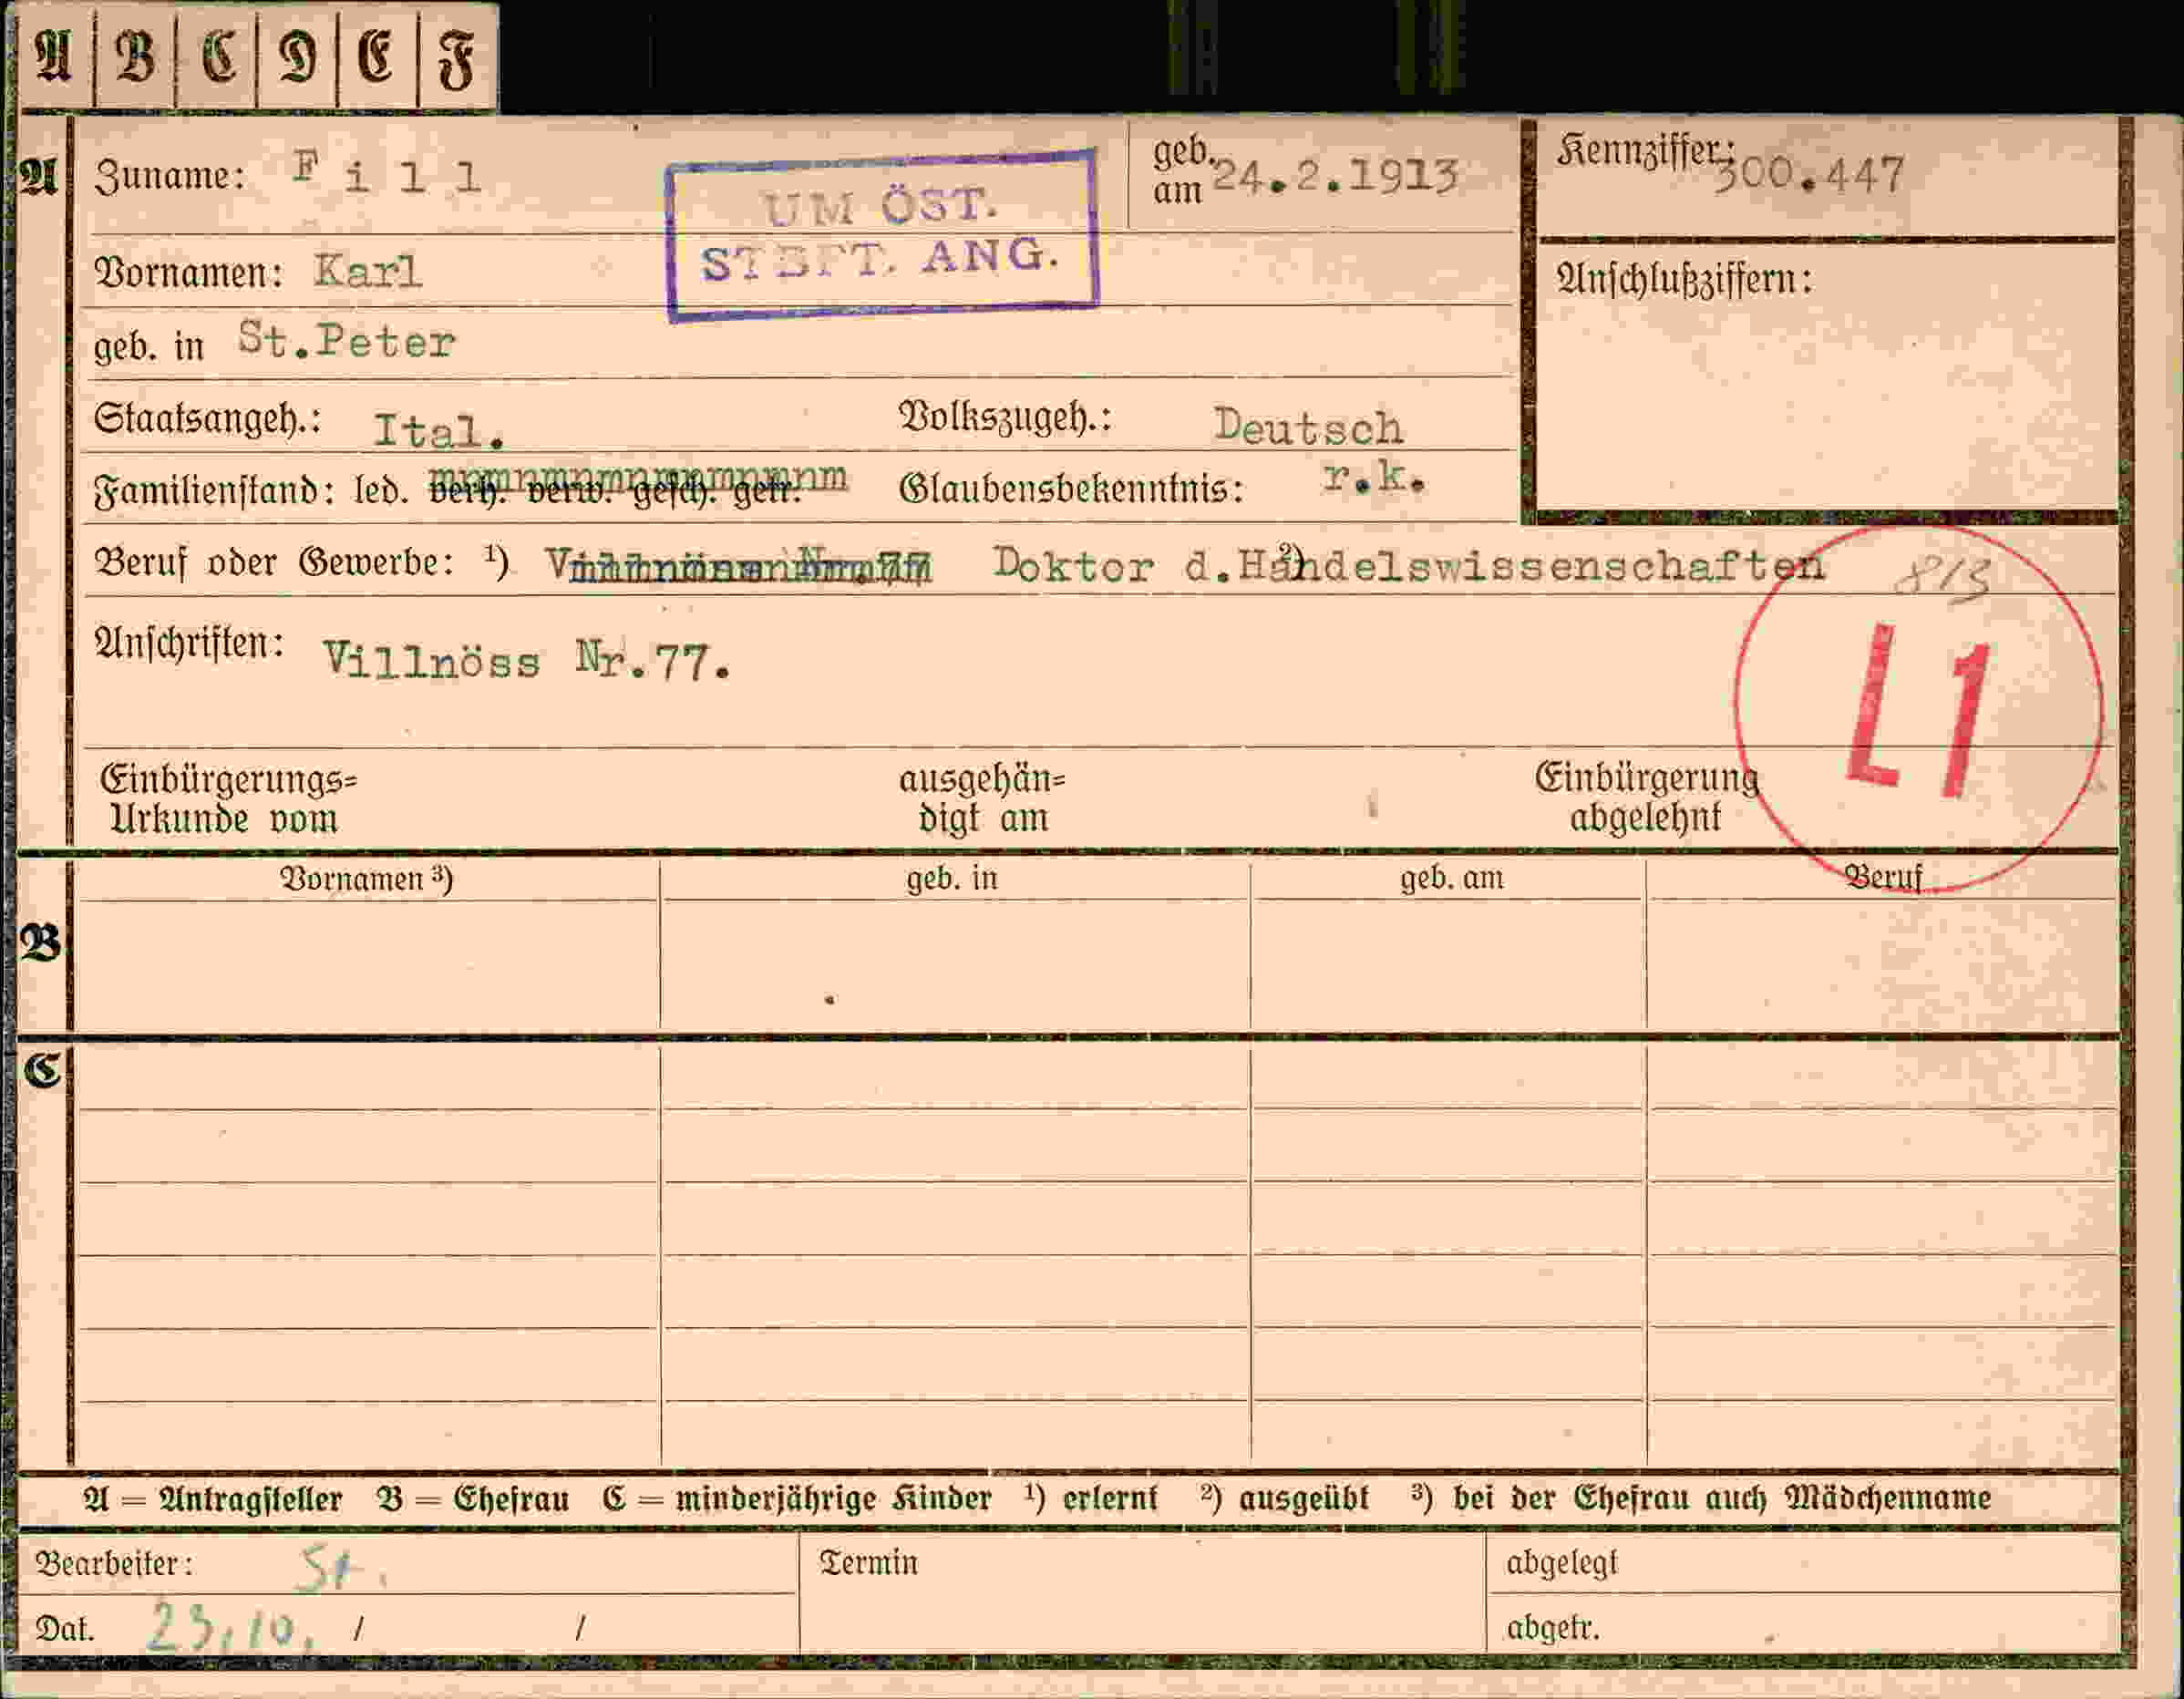 A B C D E F
A Zuname: Fill
geb. am 24.2.1913
Kennziffer: 300.447
UM ÖST.
STSFT. ANG.
Vornamen: Karl
Anschlußziffern:
geb. in St.Peter
Staatsangeh.: Ital. Volkszugeh.: Deutsch
Familienstand: led. verh. verw. gesch. getr. Glaubensbekenntnis: r.k.
Beruf oder Gewerbe: ¹) Villnöss Nr.77 ²) Doktor d.Handelswissenschaften 813
Anschriften: Villnöss Nr.77.
L1
Einbürgerungs= ausgehän= Einbürgerung
Urkunde vom digt am abgelehnt
Vornamen ³) geb. in geb. am Beruf
B
C
A = Antragsteller B = Ehefrau C = minderjährige Kinder ¹) erlernt ²) ausgeübt ³) bei der Ehefrau auch Mädchenname
Bearbeiter: St. Termin abgelegt
Dat. 23.10. / / abgetr.